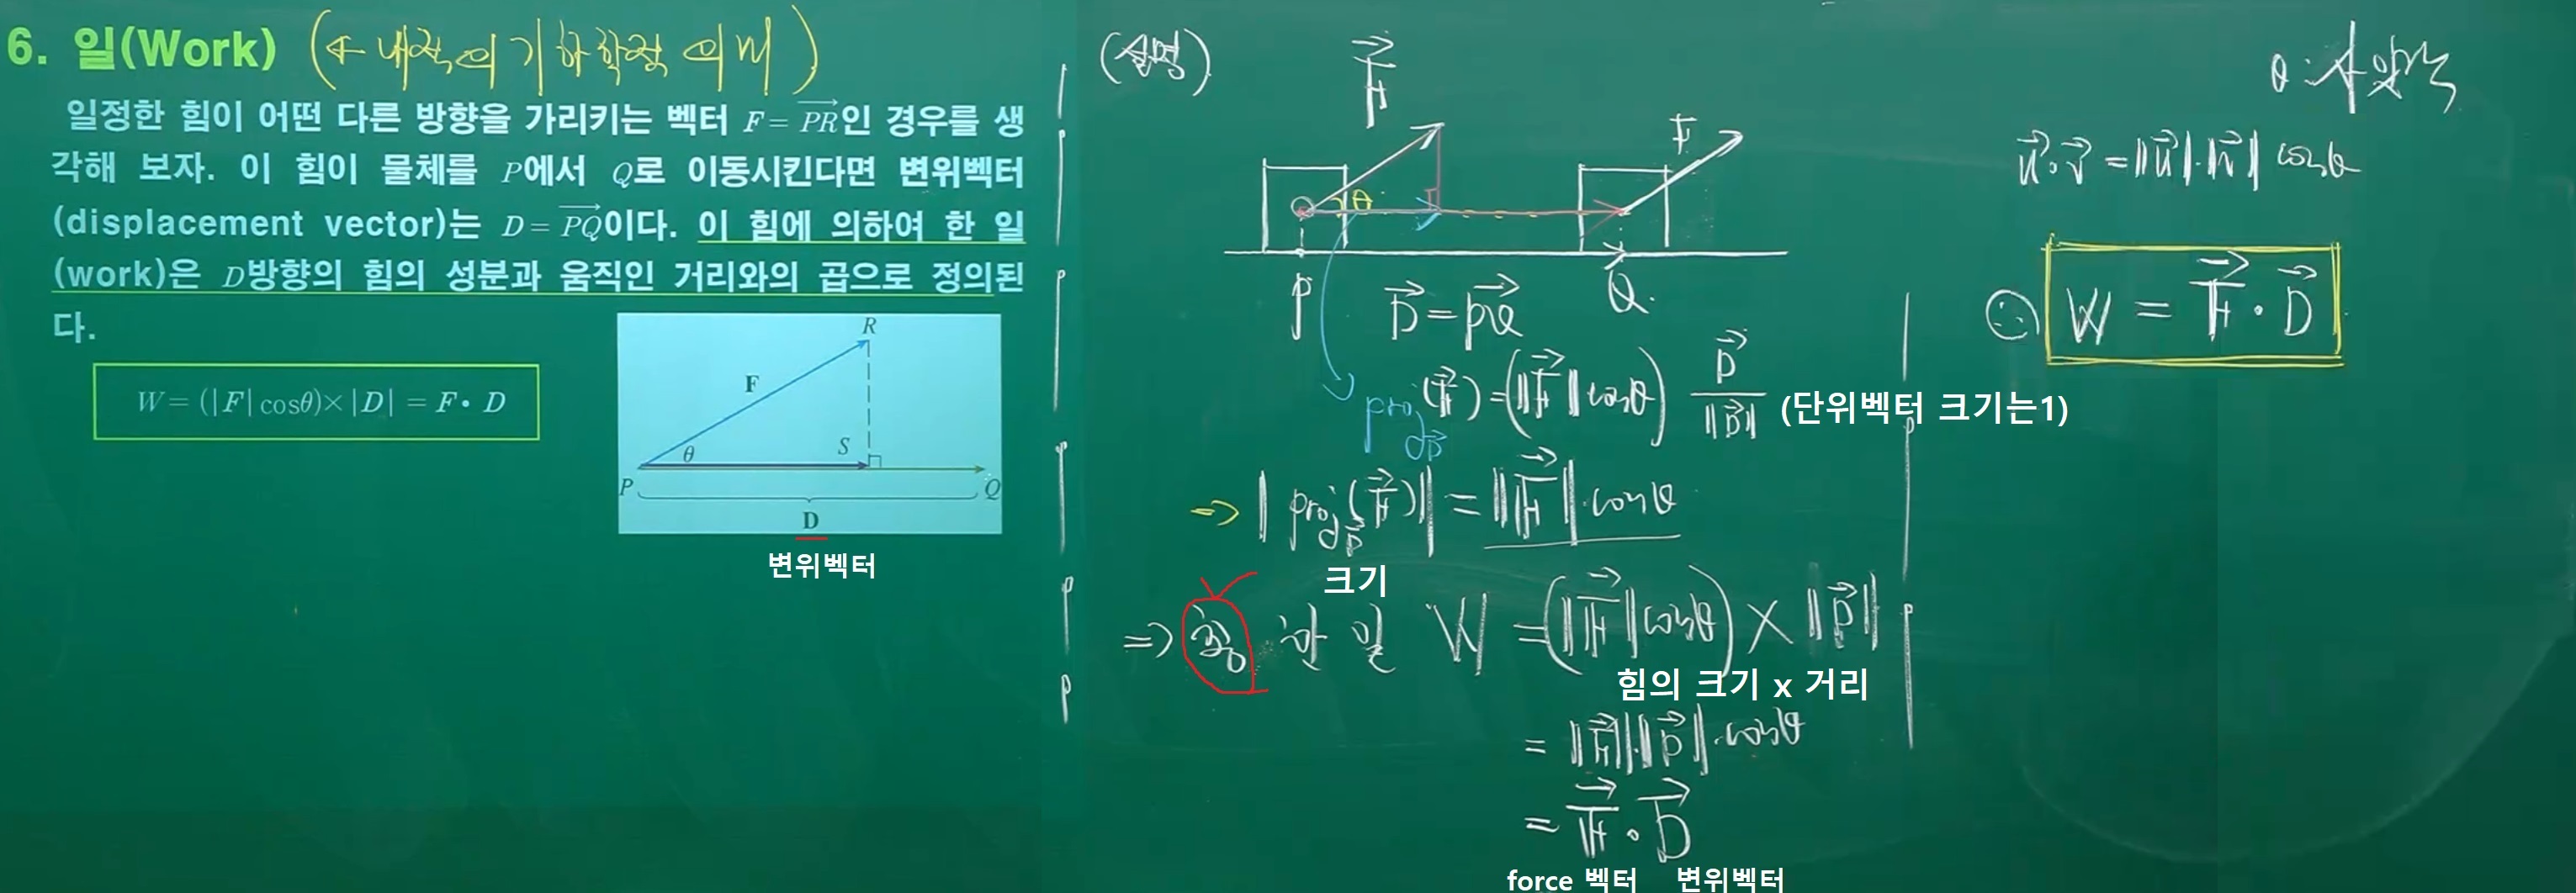 6. 일(Work) (← 내적의 기하학적 의미)
일정한 힘이 어떤 다른 방향을 가리키는 벡터 F = PR인 경우를 생
각해 보자. 이 힘이 물체를 P에서 Q로 이동시킨다면 변위벡터
(displacement vector)는 D = PQ이다. 이 힘에 의하여 한 일
(work)은 D방향의 힘의 성분과 움직인 거리와의 곱으로 정의된
다.
W = (|F| cosθ)×|D| = F • D
R
F
θ
S
P
Q
D
변위벡터
(설명)
F
F
θ
P
Q
D = PQ
proj_D (F) = (‖F‖ cosθ) D/‖D‖ (단위벡터 크기는1)
⇒ ‖proj_D (F)‖ = ‖F‖·cosθ
크기
⇒ 한 일 W = (‖F‖ cosθ) × ‖D‖
힘의 크기 x 거리
= ‖F‖·‖D‖·cosθ
= F • D
force 벡터 변위벡터
θ : 사잇각
u • v = ‖u‖·‖v‖ cosθ
W = F • D